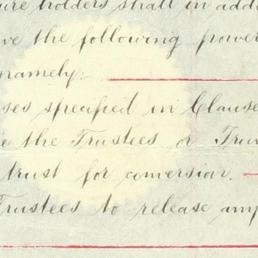 ture holders shall in add
ve the following power
namely:
ses specified in Clause
e the Trustees or Trus
trust for conversion.
Trustees to release any